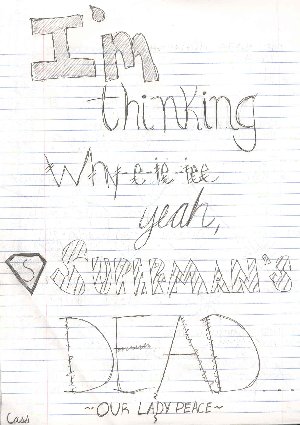 I'm
thinking
Why-e-ie-iee
yeah,
S SUPERMAN'S
DEAD
~OUR LADY PEACE~
Cass